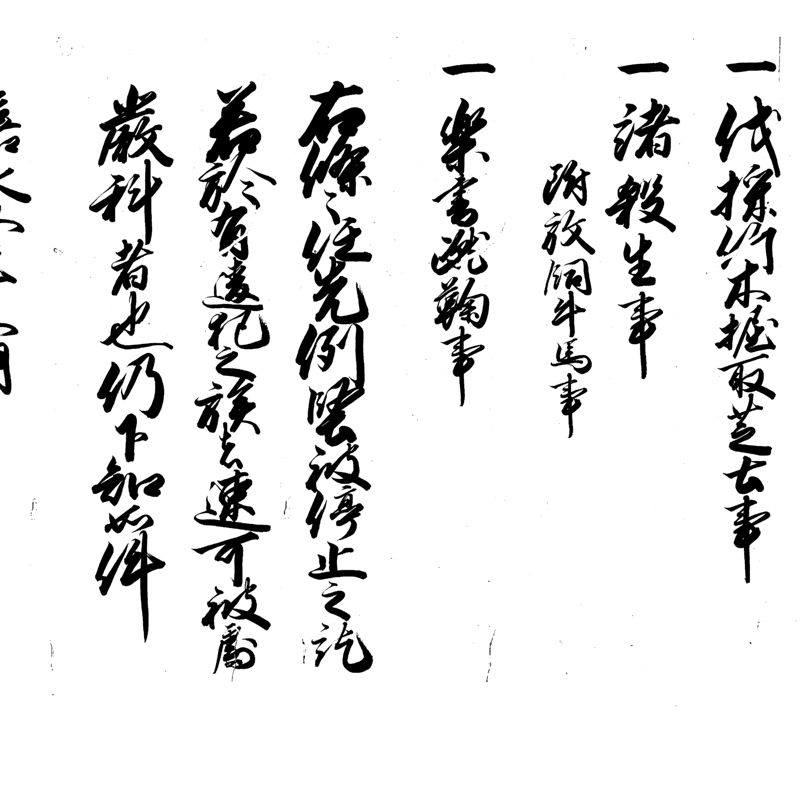 一 伐採竹木掘取芝土事
一 諸殺生事
附放飼牛馬事
一 楽書蹴鞠事
右條〻任先例堅被停止之訖
若於有違犯之族者速可被處
嚴科者也仍下知如件